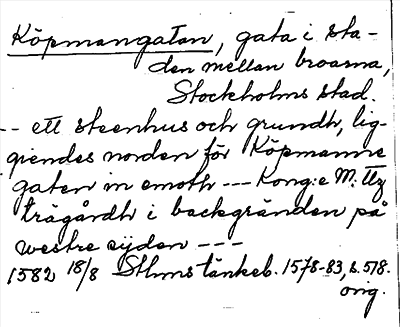 Köpmangatan, gata i sta-
den mellan broarna,
Stockholms stad.
-- ett steenhus och grundh, lig-
giendes norden för Köpmanne
gaten in emoth --- Kong:e M:ttz
trägårdh i backgränden på
westre sijden ---
1582 18/8 Sthms tänkeb. 1578-83, s. 578.
orig.